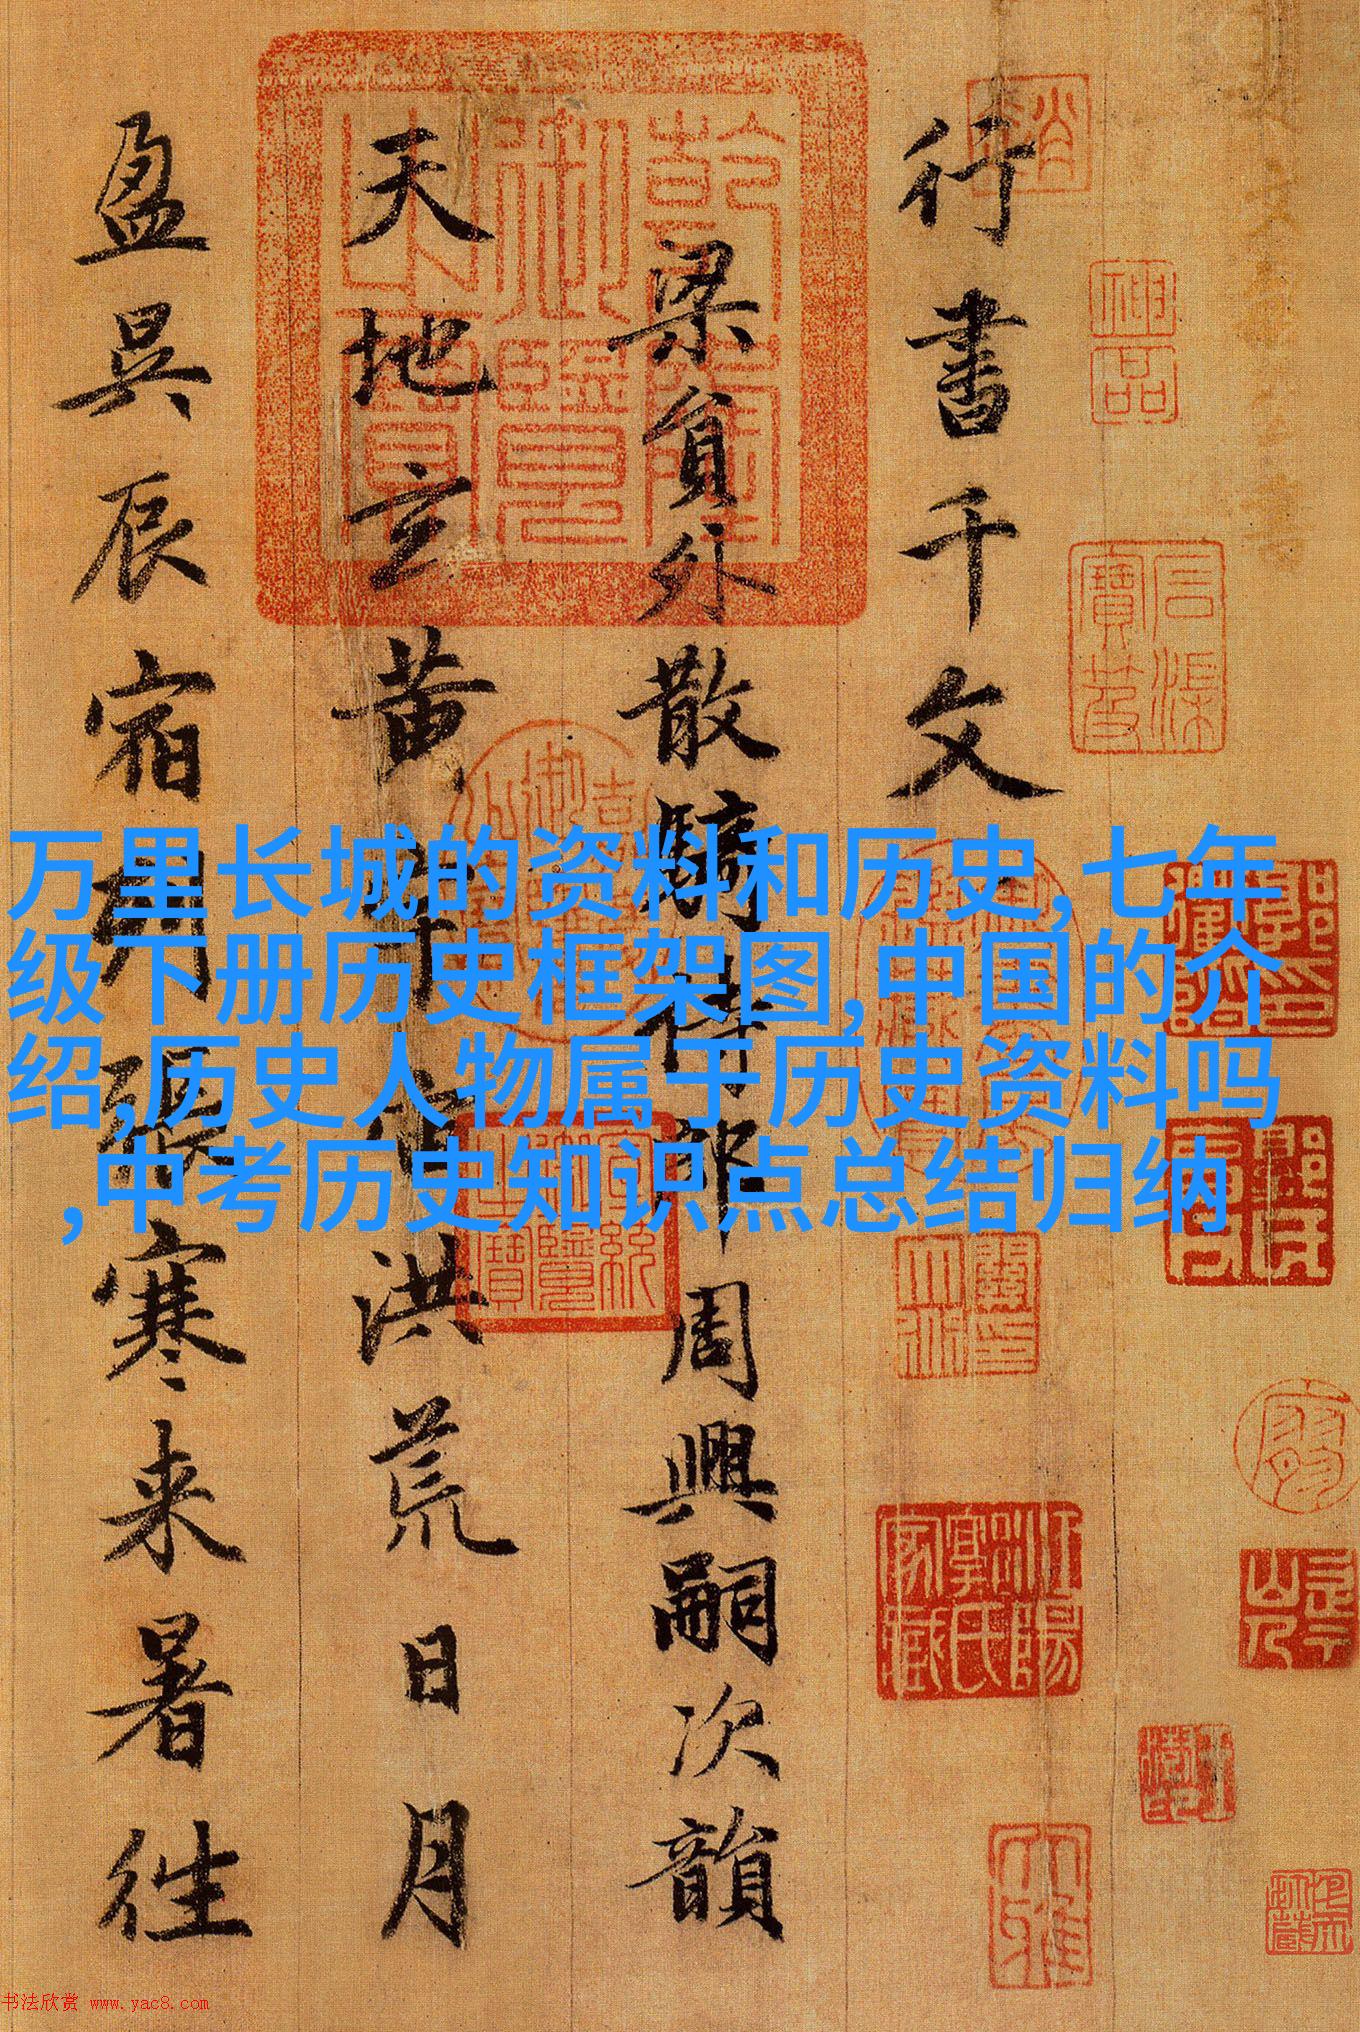 行書千文
梁員外散騎侍郎周興嗣次韻
天地玄黄洪荒日月
盈昃辰宿列張寒来暑往
乾隆御覽之寶
神品
石渠寶笈
宣統御覽之寶
万里长城的资料和历史,七年
级下册历史框架图,中国的介
绍,历史人物属于历史资料吗
,中考历史知识点总结归纳
书法欣赏 www.yac8.com